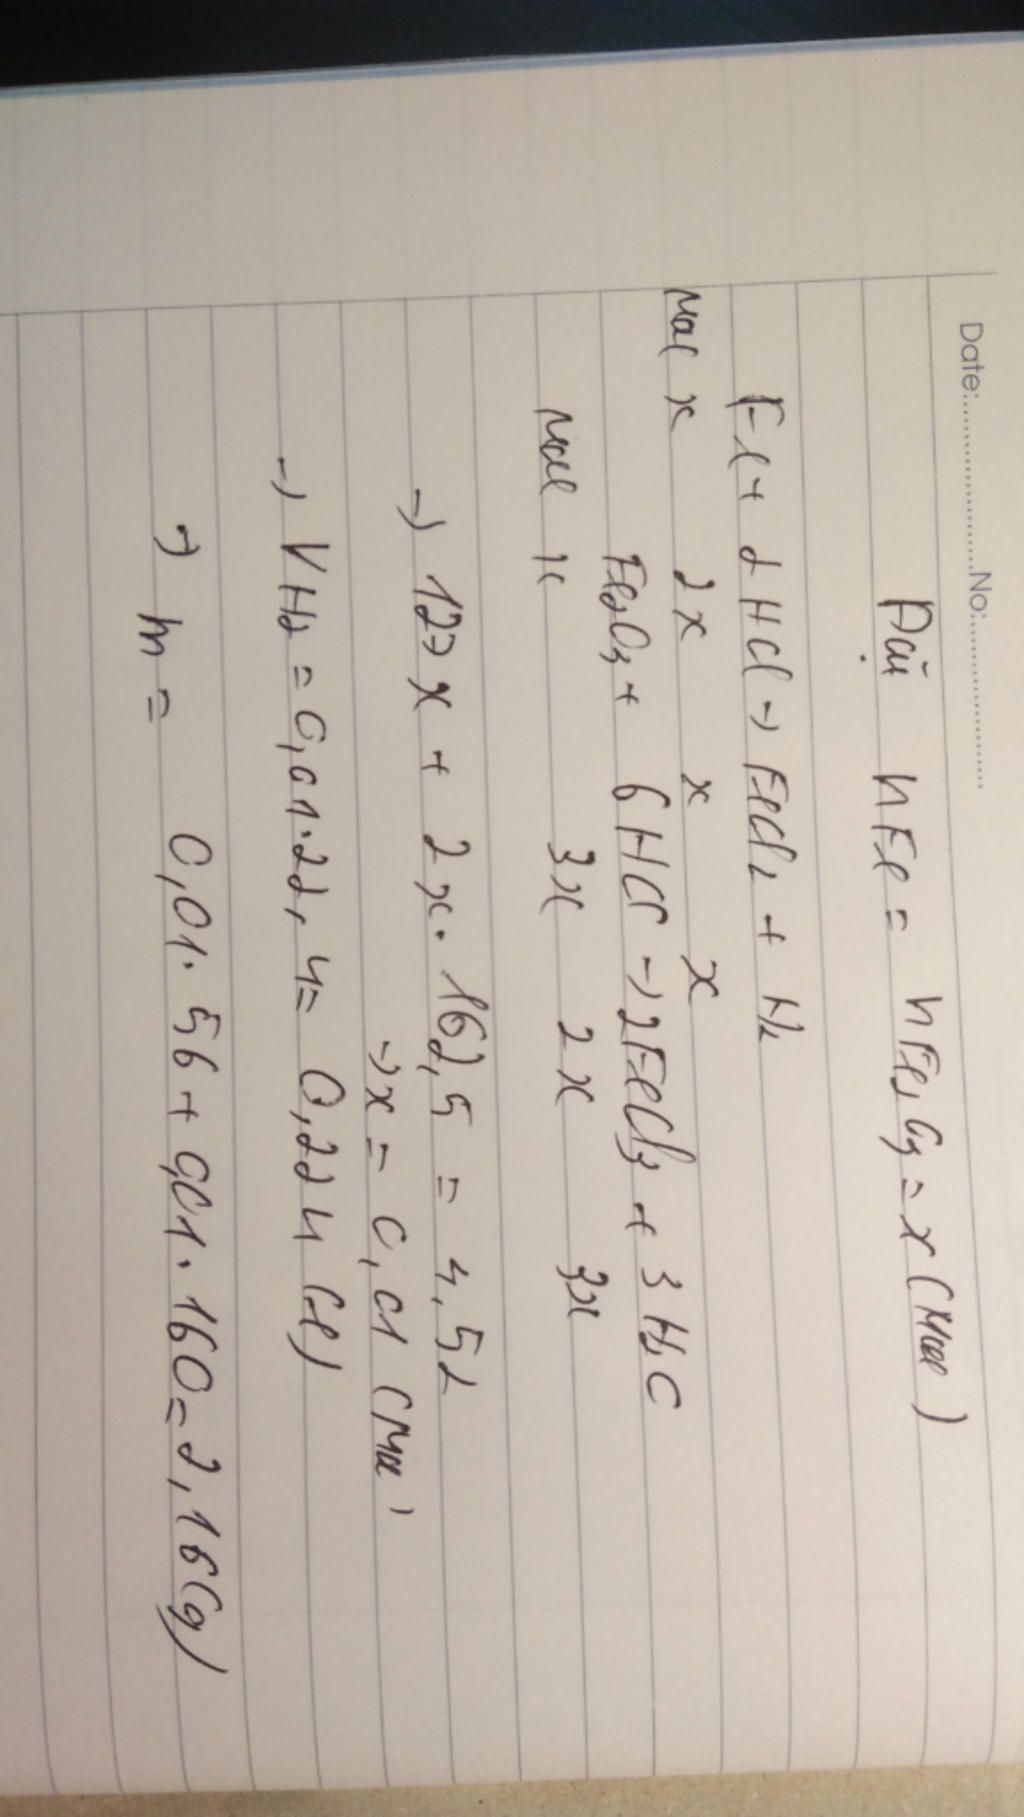 Date:...................No:...................
Đặt nFe = nFe2O3 = x (Mol)
Fe + 2HCl → FeCl2 + H2
Mol x 2x x x
Fe2O3 + 6HCl → 2FeCl3 + 3H2O
Mol x 3x 2x 3x
→ 127x + 2x . 162,5 = 4,52
→ x = 0,01 (Mol)
→ VH2 = 0,01.22,4 = 0,224 (l)
→ m = 0,01. 56 + 0,01. 160 = 2,16 (g)